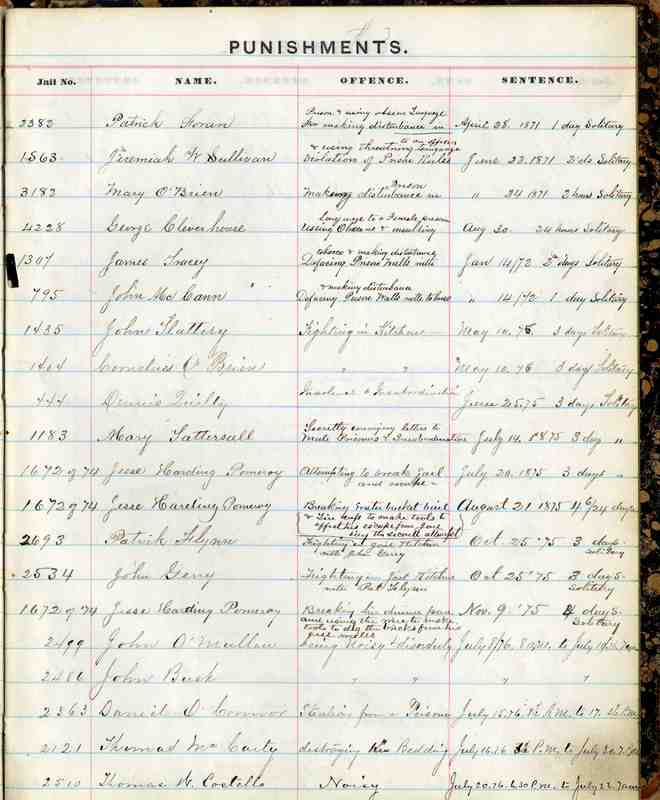 PUNISHMENTS.
Jail No. NAME. OFFENCE. SENTENCE.
Prison & using obscene Language
2382 Patrick making disturbance in April 28. 1871 1 day Solitary
& using threatning Language to an officer
1563 Jeremiah W Sullivan Violation of Rules June 23. 1871 Solitary
Prison
3182 Mary O'Brien Making disturbance in " 24 1871 2 hours Solitary
Language to a Female prisoner
4228 George Cleverhouse Using Obscene & insulting Aug 30 24 hours Solitary
& making disturbance
1307 James Tracey Defacing Prison Walls Jan 14/72 days Solitary
& making disturbance
795 John McCann Defacing Prison Walls " 14/72 1 day Solitary
1435 John Slattery Fighting in Kitchen May 10. 75. 3 days Solitary
1404 Cornelius O'Brien " " May 10. 75 3 days Solitary
444 Dennis Insolence & Insubordination June 25. 75 3 days Solitary
Secretly conveying letters to
1183 Mary Tattersall Male Prisoners & Insubordination July 14. 1875 3 day "
1672 of 74 Jesse Harding Pomeroy Attempting to break jail July 20. 1875 3 days "
and escape
1672 of 74 Jesse Harding Pomeroy Breaking water bucket August 21 1875 days
& to make tools to
effect his escape from Jail
being the second attempt
2693 Patrick Flynn Fighting in Jail Kitchen Oct 25 '75 3 days
with John Gerry Solitary
2534 John Gerry Fighting in Jail Kitchen Oct 25 '75 3 days
with Pat Flynn Solitary
1672 of '74 Jesse Harding Pomeroy Breaking his dinner pan Nov. 9 '75 4 days
and using the wire to make Solitary
tools to dig the bricks from his
cell
2499 John O'Mullen being Noisy & disorderly July 8/76. 8 a.m. to July
2486 John Bush " " " "
2363 Daniel O'Connor from a Prisoner July 15. 76. P.M. to 17.
2121 Thomas McCarty destroying his Bedding July 16. 76 P.M. to July 20. 7 P.M.
2510 Thomas W. Costello Noisy July 20. 76. 6.30 P.M. to July 22. 7 am